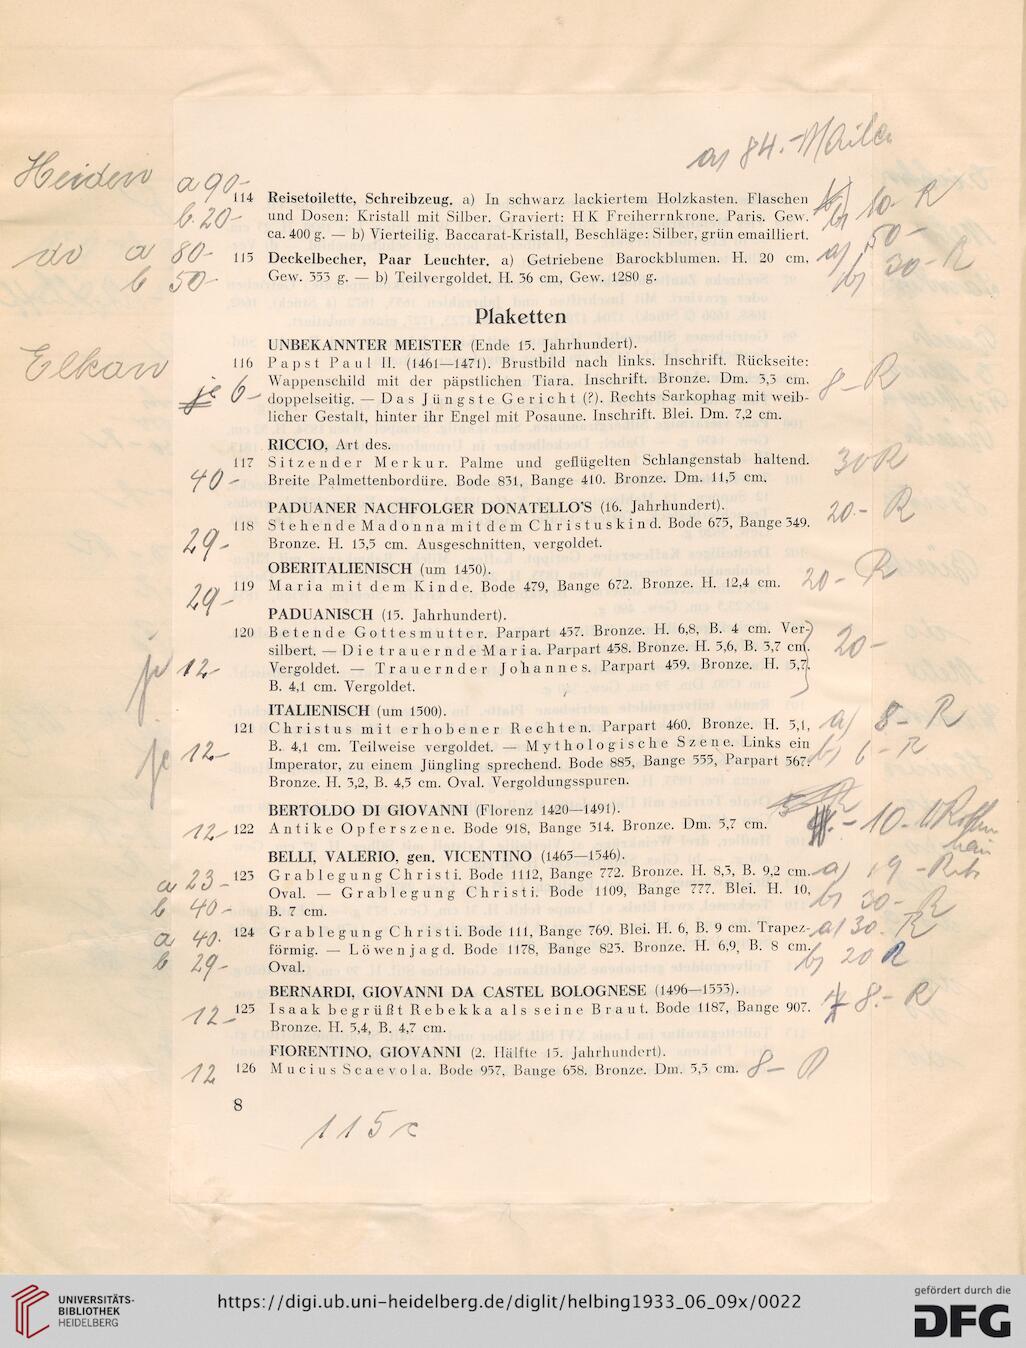 a) 84.-
Heiden a 90-
b. 20-
114 Reisetoilette, Schreibzeug. a) In schwarz lackiertem Holzkasten. Flaschen
und Dosen: Kristall mit Silber. Graviert: H K Freiherrnkrone. Paris. Gew. b) 10- R
ca. 400 g. — b) Vierteilig. Baccarat-Kristall, Beschläge: Silber, grün emailliert.
do a 80- 115 Deckelbecher, Paar Leuchter. a) Getriebene Barockblumen. H. 20 cm, a) 50-
b 50- Gew. 353 g. — b) Teilvergoldet. H. 36 cm, Gew. 1280 g. b) 30- R
Plaketten
UNBEKANNTER MEISTER (Ende 15. Jahrhundert).
Elkan 116 Papst Paul II. (1461—1471). Brustbild nach links. Inschrift. Rückseite:
je 6- Wappenschild mit der päpstlichen Tiara. Inschrift. Bronze. Dm. 3,3 cm, 8- R
doppelseitig. — Das Jüngste Gericht (?). Rechts Sarkophag mit weib-
licher Gestalt, hinter ihr Engel mit Posaune. Inschrift. Blei. Dm. 7,2 cm.
RICCIO, Art des.
117 Sitzender Merkur. Palme und geflügelten Schlangenstab haltend. 30 R
40- Breite Palmettenbordüre. Bode 831, Bange 410. Bronze. Dm. 11,5 cm.
PADUANER NACHFOLGER DONATELLO'S (16. Jahrhundert).
118 Stehende Madonna mit dem Christuskind. Bode 675, Bange 349. 20.- R
29- Bronze. H. 13,5 cm. Ausgeschnitten, vergoldet.
OBERITALIENISCH (um 1450).
29- 119 Maria mit dem Kinde. Bode 479, Bange 672. Bronze. H. 12,4 cm. 20- R
PADUANISCH (15. Jahrhundert).
120 Betende Gottesmutter. Parpart 457. Bronze. H. 6,8, B. 4 cm. Ver-
silbert. — Die trauernde Maria. Parpart 458. Bronze. H. 5,6, B. 3,7 cm. 20-
je 12- Vergoldet. — Trauernder Johannes. Parpart 459. Bronze. H. 5,7,
B. 4,1 cm. Vergoldet.
ITALIENISCH (um 1500).
121 Christus mit erhobener Rechten. Parpart 460. Bronze. H. 5,1, a) 8- R
je 12- B. 4,1 cm. Teilweise vergoldet. — Mythologische Szene. Links ein b) 6- R
Imperator, zu einem Jüngling sprechend. Bode 885, Bange 555, Parpart 567.
Bronze. H. 3,2, B. 4,5 cm. Oval. Vergoldungsspuren.
BERTOLDO DI GIOVANNI (Florenz 1420—1491).
12- 122 Antike Opferszene. Bode 918, Bange 314. Bronze. Dm. 5,7 cm. 10-
BELLI, VALERIO, gen. VICENTINO (1465—1546).
a 23- 123 Grablegung Christi. Bode 1112, Bange 772. Bronze. H. 8,3, B. 9,2 cm. a) 19-
b 40- Oval. — Grablegung Christi. Bode 1109, Bange 777. Blei. H. 10, b) 30- R
B. 7 cm.
a 40. 124 Grablegung Christi. Bode 111, Bange 769. Blei. H. 6, B. 9 cm. Trapez- a) 30. R
b 29- förmig. — Löwenjagd. Bode 1178, Bange 823. Bronze. H. 6,9, B. 8 cm. b) 20 R
Oval.
BERNARDI, GIOVANNI DA CASTEL BOLOGNESE (1496—1553).
12- 125 Isaak begrüßt Rebekka als seine Braut. Bode 1187, Bange 907. 8.- R
Bronze. H. 5,4, B. 4,7 cm.
FIORENTINO, GIOVANNI (2. Hälfte 15. Jahrhundert).
12 126 Mucius Scaevola. Bode 957, Bange 658. Bronze. Dm. 5,5 cm. 8- R
8
115
UNIVERSITÄTS-
BIBLIOTHEK
HEIDELBERG
https://digi.ub.uni-heidelberg.de/diglit/helbing1933_06_09x/0022
gefördert durch die
DFG